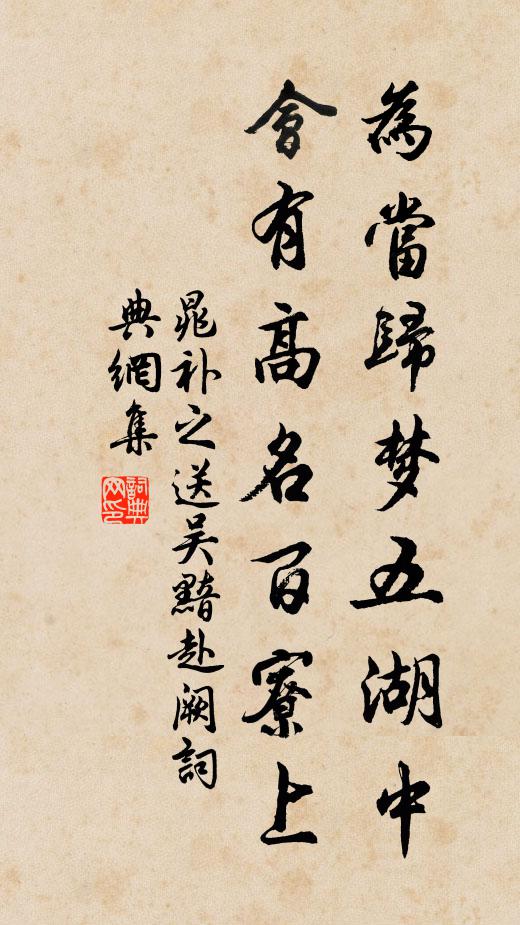 為當歸梦五湖中
會有高名百寮上
晁补之送吴黯赴阙詞
典網集
詞典網印